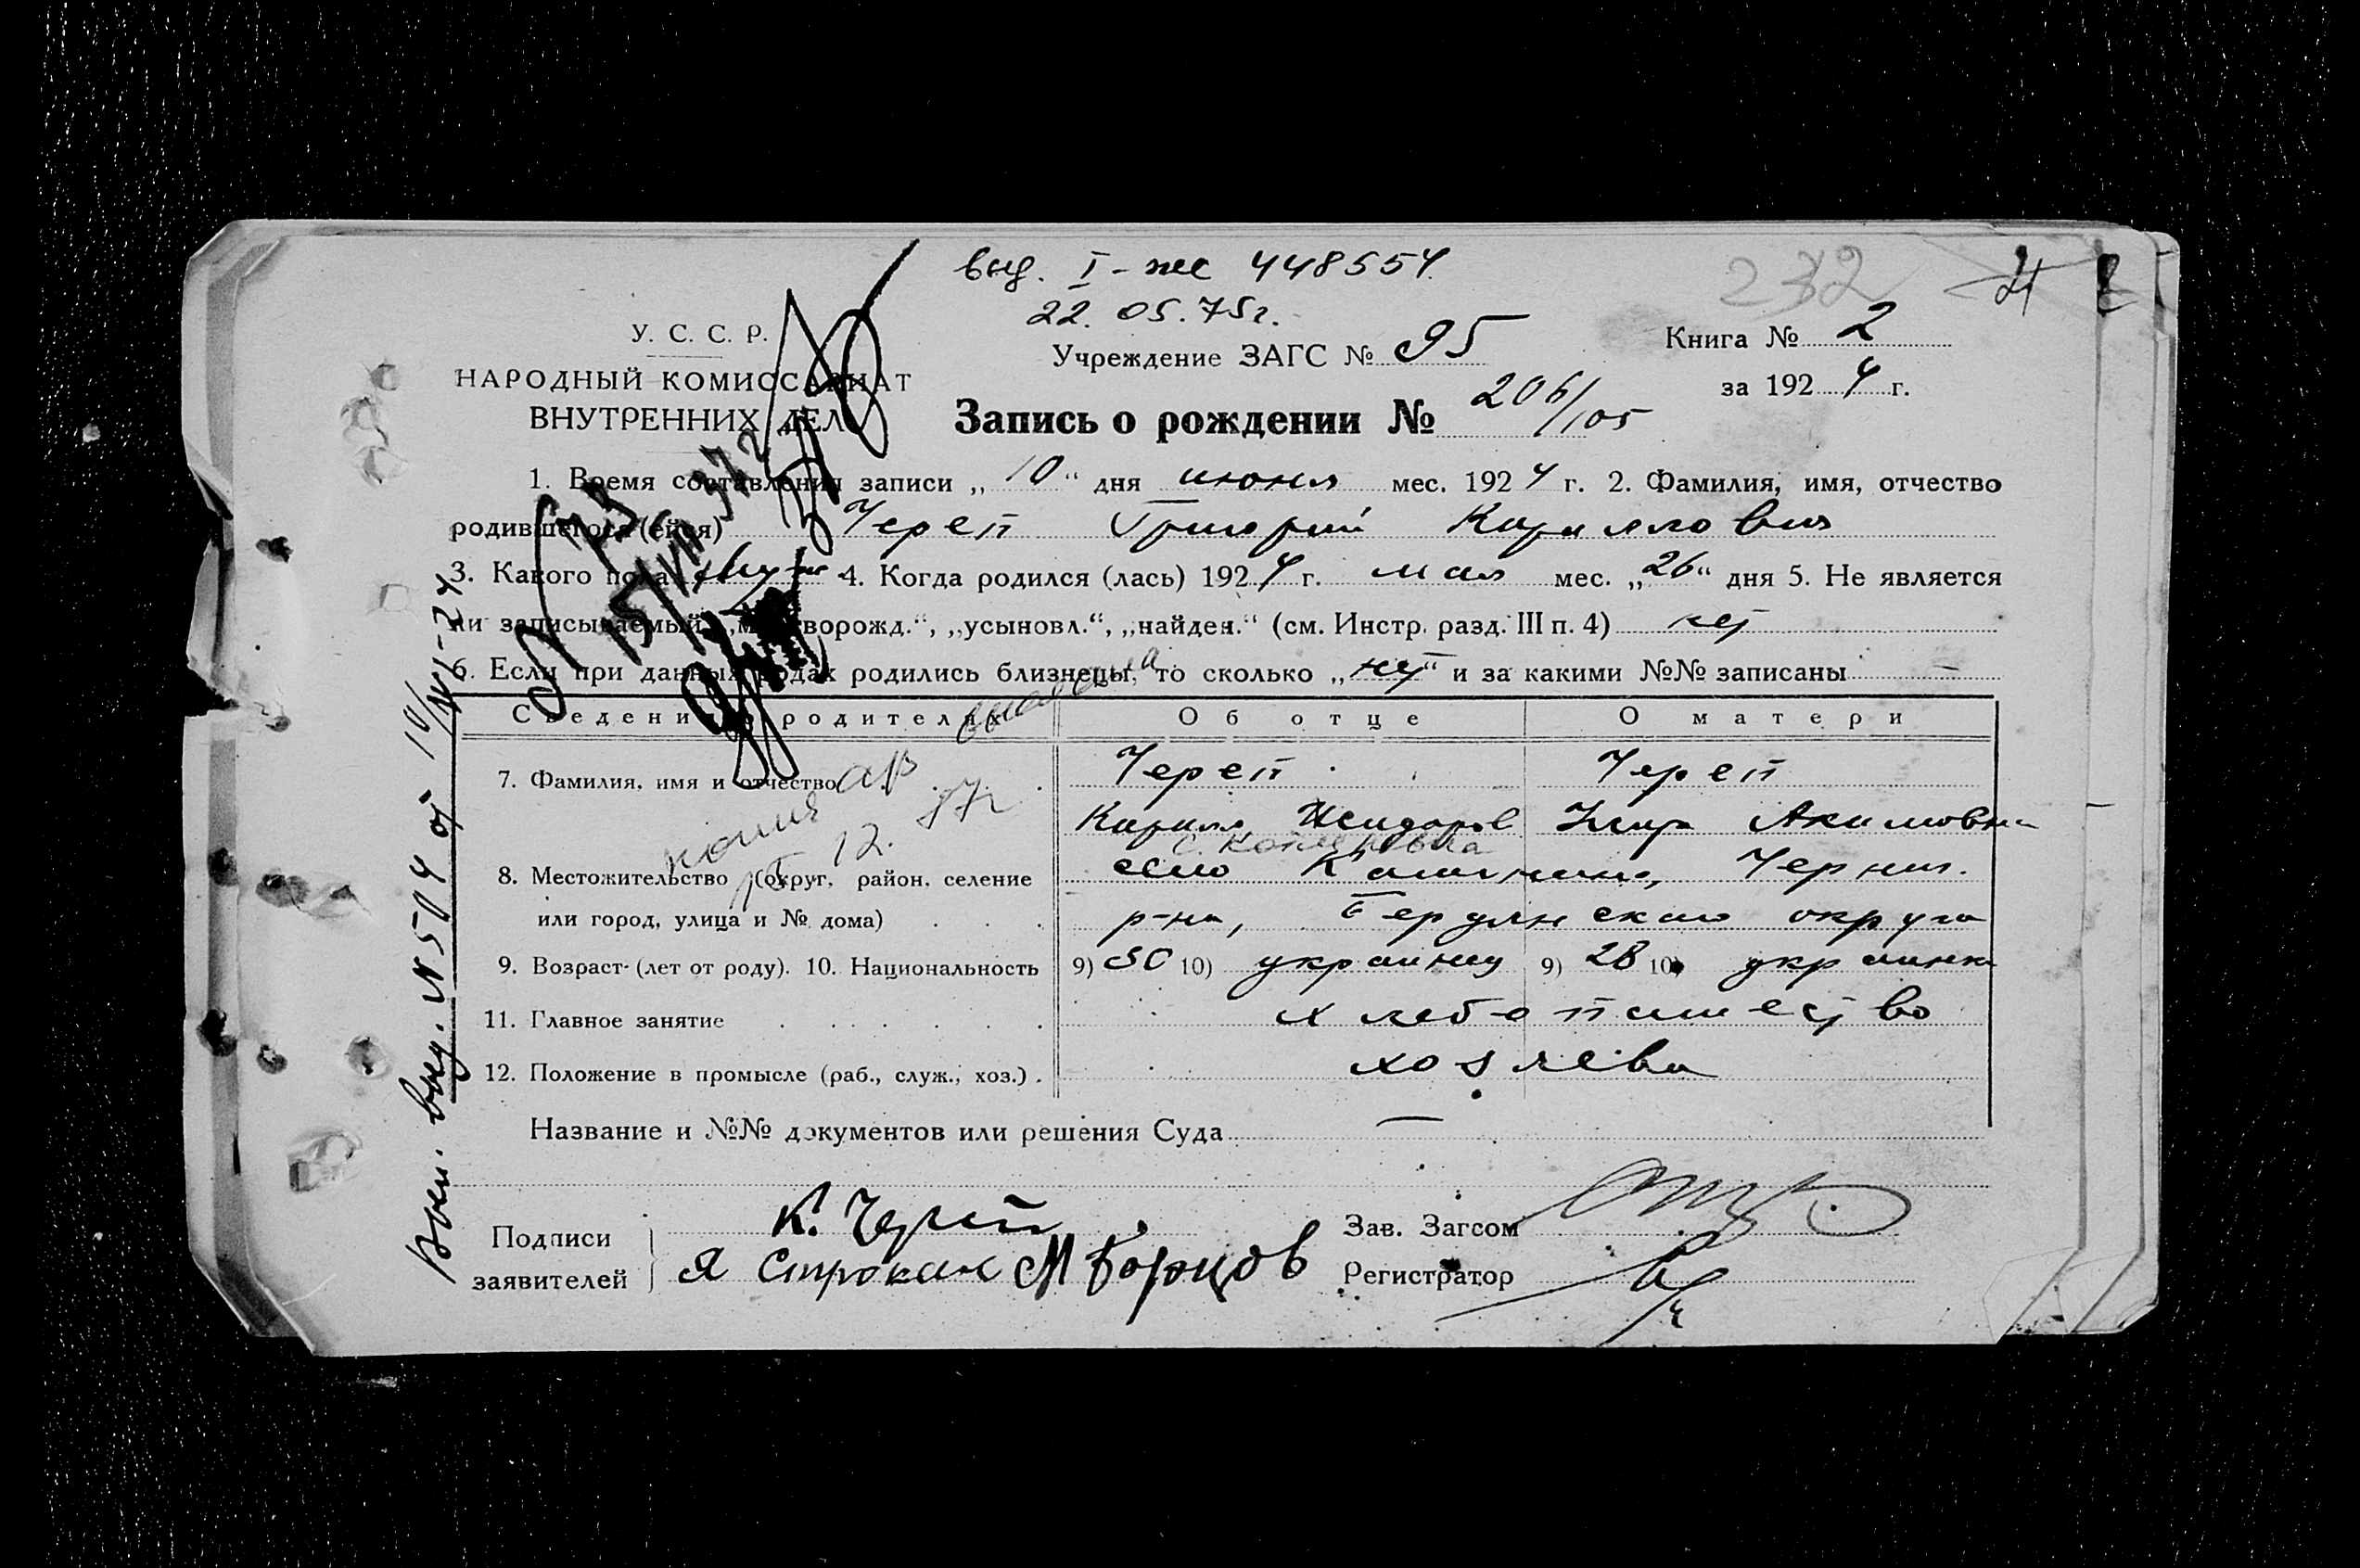 выд. I-же 448554.
22.05.75г.
232
У. С. С. Р.
Учреждение ЗАГС № 95
Книга № 2
НАРОДНЫЙ КОМИССАРИАТ
за 1924 г.
ВНУТРЕННИХ ДЕЛ
Запись о рождении № 206/105
1. Время составления записи „10“ дня июня мес. 1924 г. 2. Фамилия, имя, отчество
родившегося (ейся) Череп Григорий Кириллович
3. Какого пола муж 4. Когда родился (лась) 1924 г. мая мес. „26“ дня 5. Не является
ли записываемый „мертворожд.“, „усыновл.“, „найден.“ (см. Инстр. разд. III п. 4) нет
6. Если при данных родах родились близнецы, то сколько „нет“ и за какими №№ записаны —
Сведения о родителях Об отце О матери
7. Фамилия, имя и отчество Череп Череп
Кирилл Акимовна
8. Местожительство (округ, район, селение село Черниг.
или город, улица и № дома) р-на, Бердянского округа
9. Возраст (лет от роду). 10. Национальность 9) 30 10) украинец 9) 28 10) украинка
11. Главное занятие хлебопашество
12. Положение в промысле (раб., служ., хоз.) хозяева
Название и №№ документов или решения Суда —
Подписи К. Череп Зав. Загсом
заявителей Я Строкан М Борцов Регистратор
выд. N 504 от 10/VI-24
копия
12.